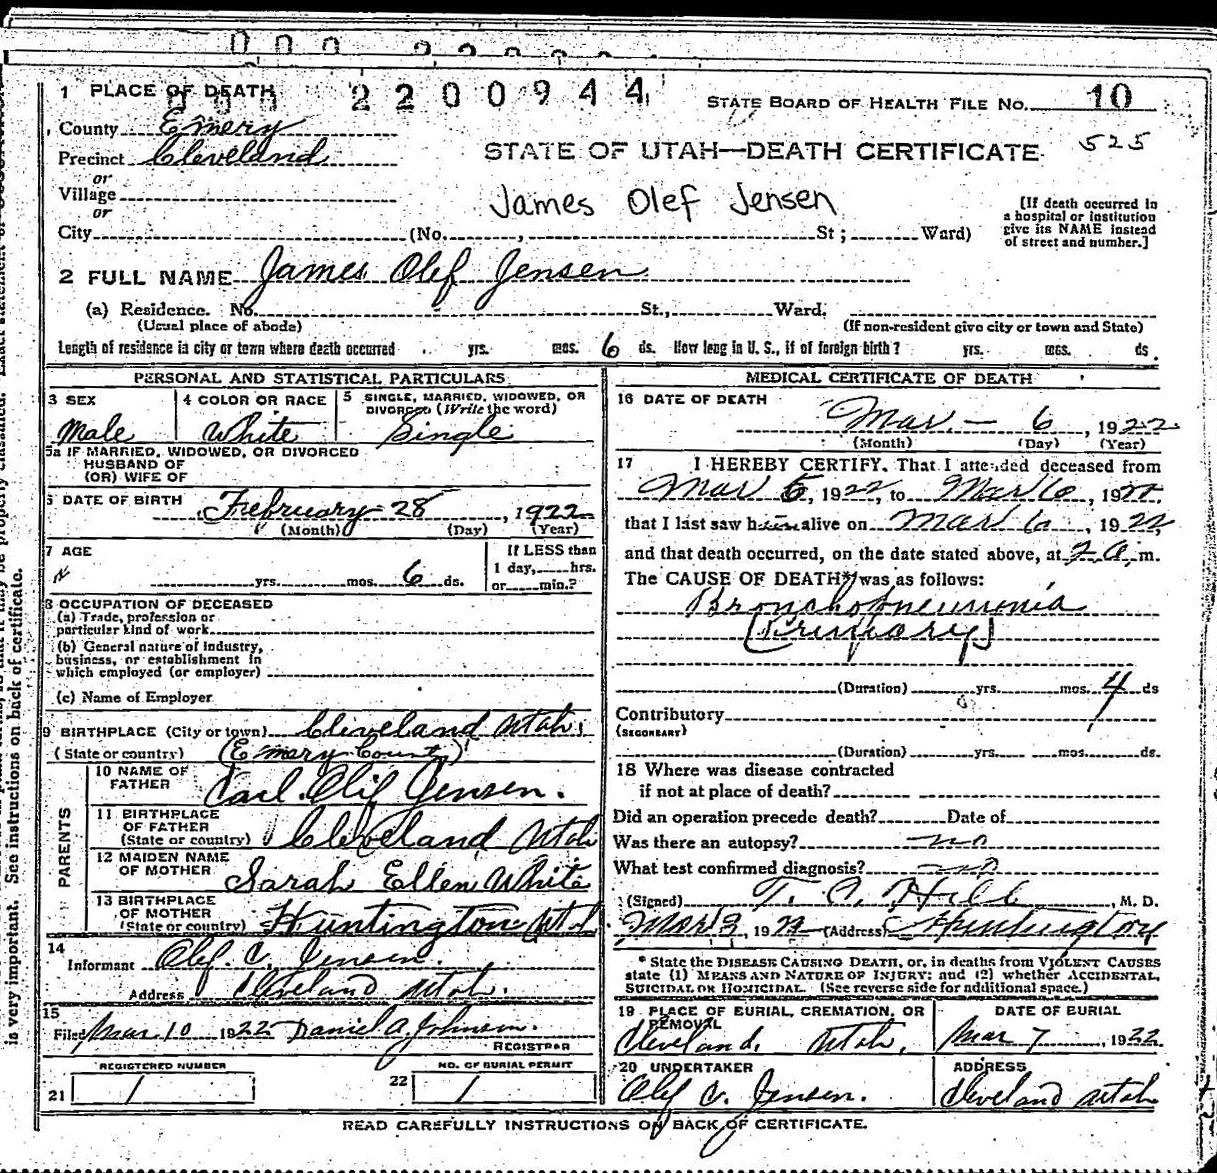 1 PLACE OF DEATH
000 2200944
STATE BOARD OF HEALTH FILE NO. 10
County Emery
525
Precinct Cleveland
STATE OF UTAH—DEATH CERTIFICATE
or
Village
James Olef Jensen
[If death occurred in a hospital or institution give its NAME instead of street and number.]
or
City (No. , St; Ward)
2 FULL NAME James Olef Jensen
(a) Residence. No. St., Ward.
(Usual place of abode) (If non-resident give city or town and State)
Length of residence in city or town where death occurred yrs. mos. 6 ds. How long in U. S., if of foreign birth? yrs. mos. ds.
PERSONAL AND STATISTICAL PARTICULARS
3 SEX
Male
4 COLOR OR RACE
White
5 SINGLE, MARRIED, WIDOWED, OR DIVORCED (Write the word)
Single
5a IF MARRIED, WIDOWED, OR DIVORCED
HUSBAND OF
(OR) WIFE OF
6 DATE OF BIRTH February 28, 1922
(Month) (Day) (Year)
7 AGE
yrs. mos. 6 ds.
If LESS than
1 day, hrs.
or min.?
8 OCCUPATION OF DECEASED
(a) Trade, profession or
particular kind of work
(b) General nature of industry,
business, or establishment in
which employed (or employer)
(c) Name of Employer
9 BIRTHPLACE (City or town) Cleveland Utah,
(State or country) (Emery County)
PARENTS
10 NAME OF FATHER Carl Olif Jensen.
11 BIRTHPLACE OF FATHER (State or country) Cleveland Utah
12 MAIDEN NAME OF MOTHER Sarah Ellen White
13 BIRTHPLACE OF MOTHER (State or country) Huntington Utah
14
Informant Olef. C. Jensen.
Address Cleveland Utah.
15
Filed Mar 10 1922 Daniel A. Johnson.
REGISTRAR
REGISTERED NUMBER
21 /
NO. OF BURIAL PERMIT
22 /
MEDICAL CERTIFICATE OF DEATH
16 DATE OF DEATH
Mar — 6, 1922
(Month) (Day) (Year)
17 I HEREBY CERTIFY, That I attended deceased from
Mar 5, 1922, to Mar 6, 1922
that I last saw him alive on Mar 6, 1922,
and that death occurred, on the date stated above, at 7 A. m.
The CAUSE OF DEATH* was as follows:
Bronchopneumonia
(Primary)
(Duration) yrs. mos. 4 ds
Contributory
(SECONDARY)
(Duration) yrs. mos. ds.
18 Where was disease contracted
if not at place of death?
Did an operation precede death? Date of
Was there an autopsy? no
What test confirmed diagnosis? no
(Signed) T. C. Hill, M. D.
Mar 9, 1922 (Address) Huntington
* State the DISEASE CAUSING DEATH, or, in deaths from VIOLENT CAUSES
state (1) MEANS AND NATURE OF INJURY; and (2) whether ACCIDENTAL,
SUICIDAL OR HOMICIDAL. (See reverse side for additional space.)
19 PLACE OF BURIAL, CREMATION, OR REMOVAL
Cleveland, Utah.
DATE OF BURIAL
Mar 7, 1922
20 UNDERTAKER
Olef C. Jensen.
ADDRESS
Cleveland Utah
READ CAREFULLY INSTRUCTIONS ON BACK OF CERTIFICATE.
is very important. See instructions on back of certificate.